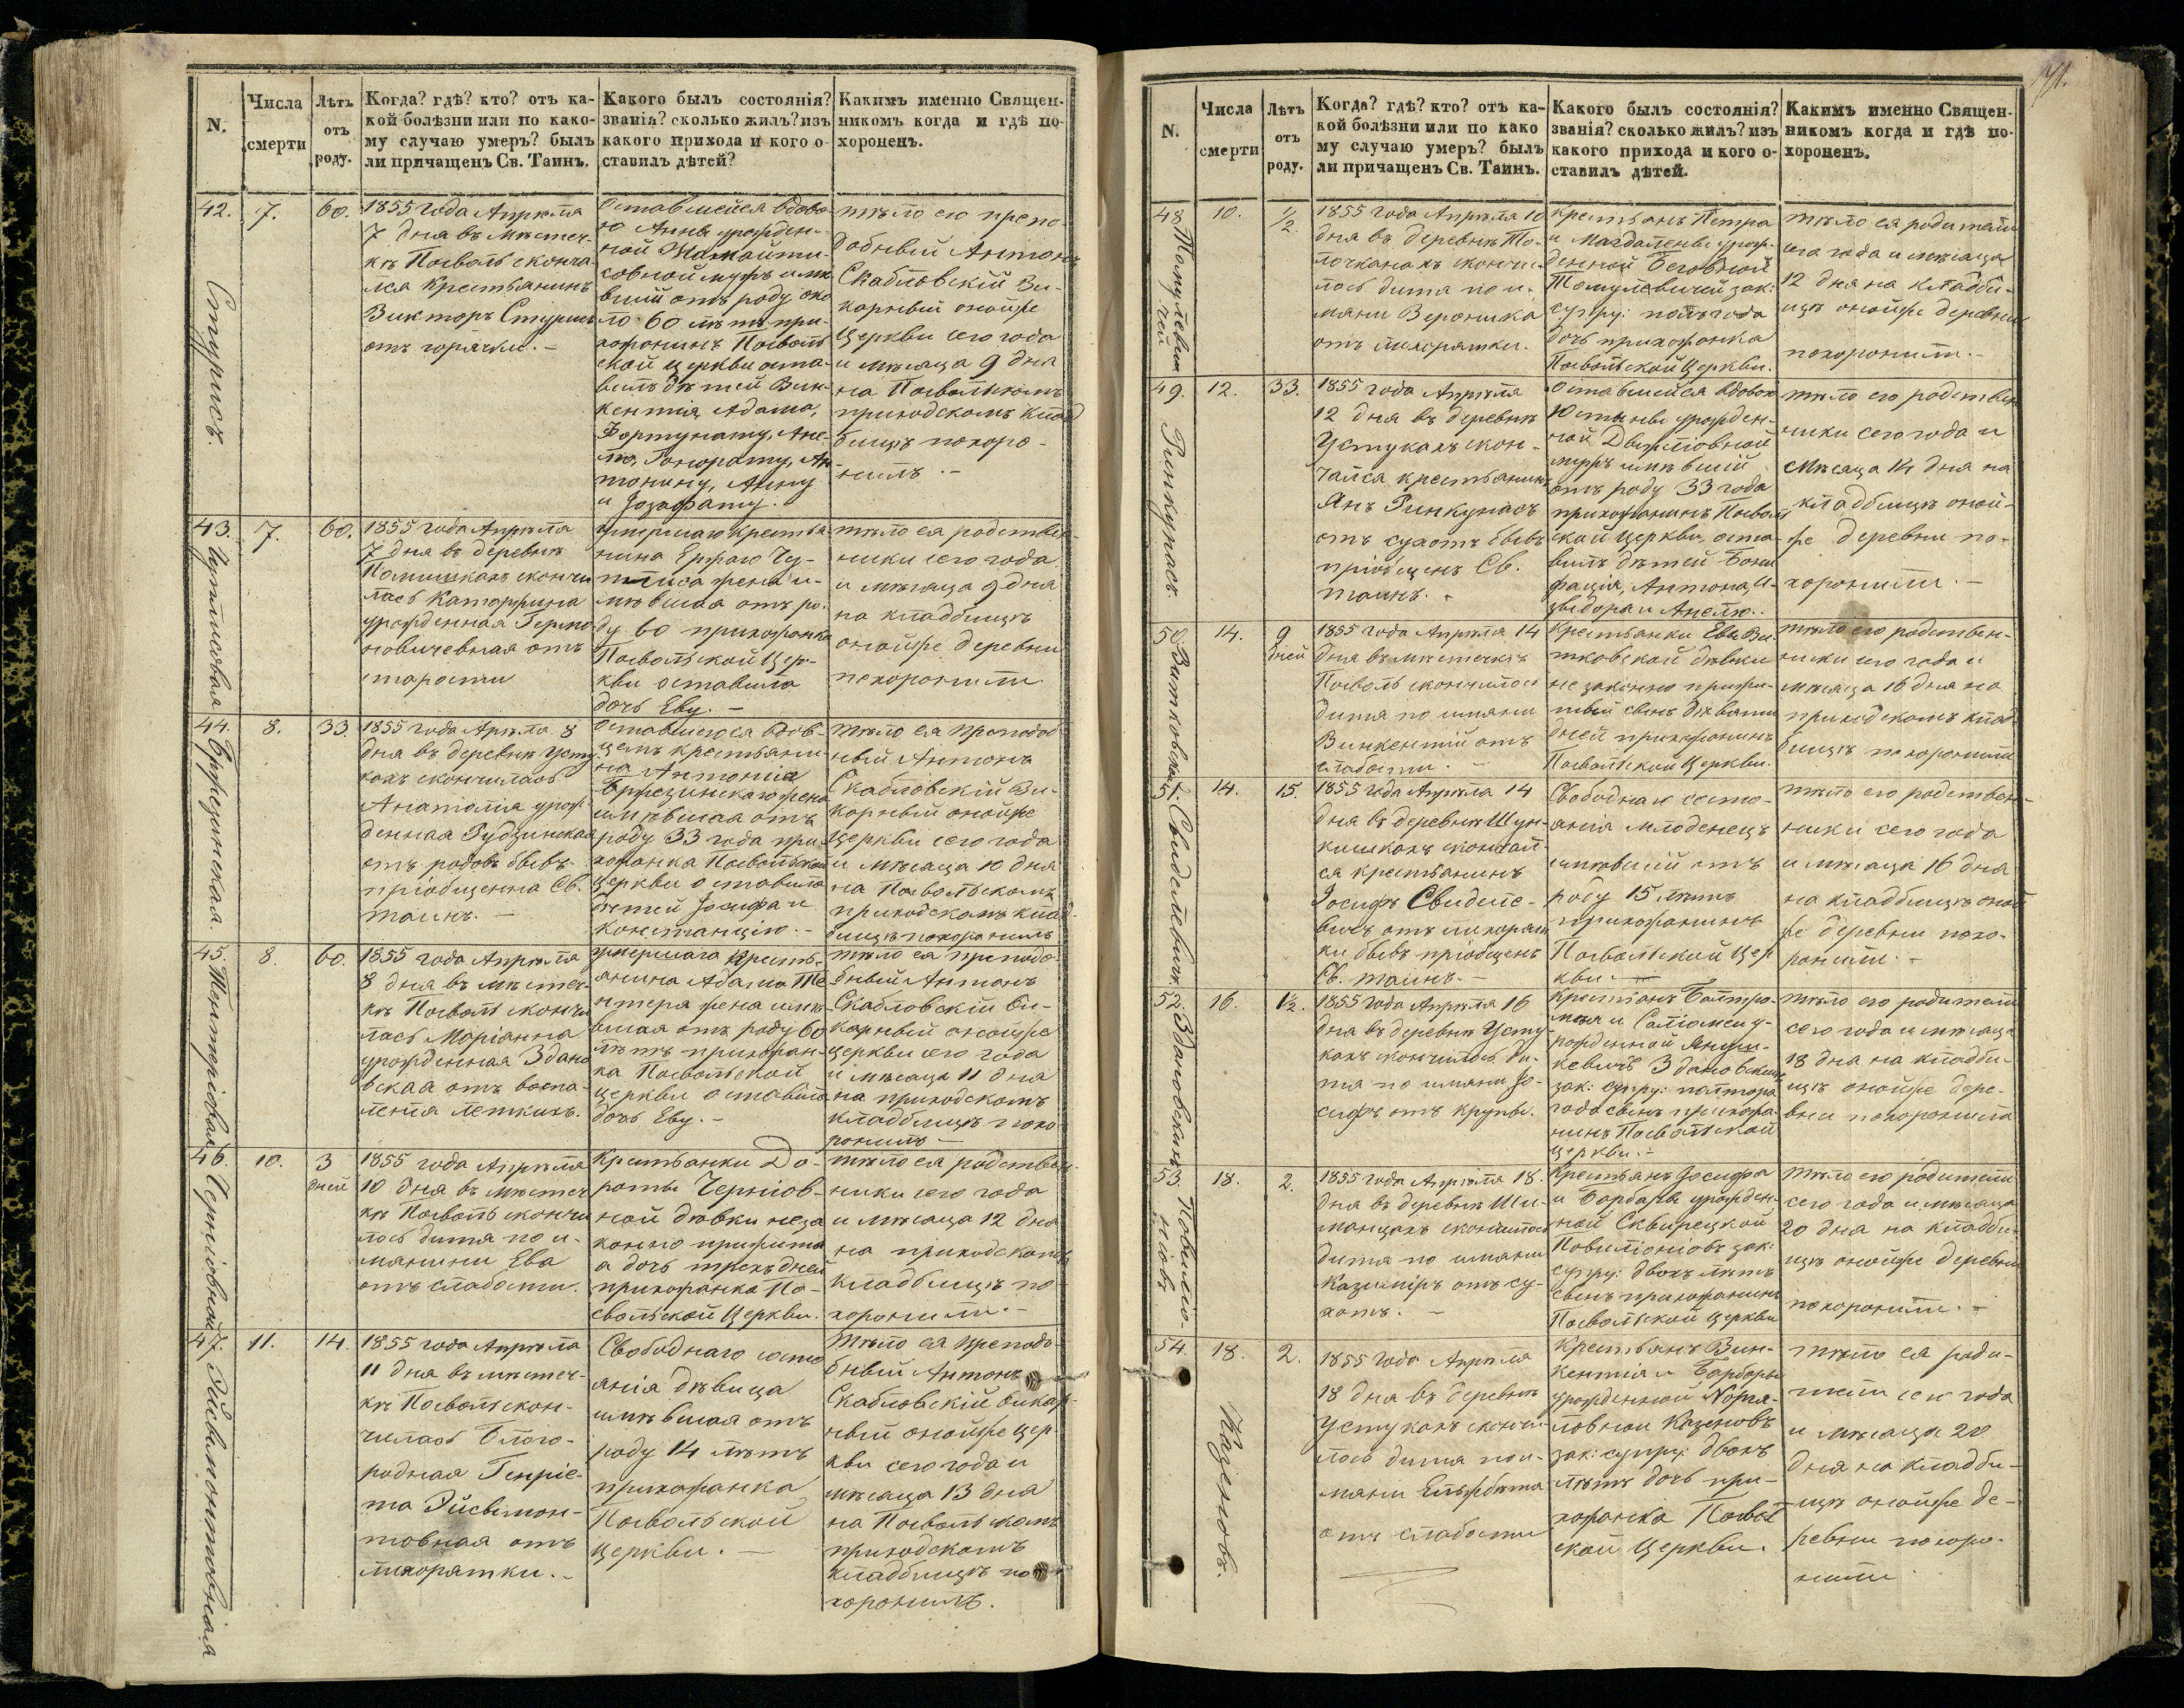 N.
Числа
смерти
Лѣтъ
отъ
роду.
Когда? гдѣ? кто? отъ ка-
кой болѣзни или по како-
му случаю умеръ? былъ
ли причащенъ Св. Таинъ.
Какого былъ состоянія?
званія? сколько жилъ? изъ
какого прихода и кого о-
ставилъ дѣтей?
Какимъ именно Священ-
никомъ когда и гдѣ по-
хороненъ.
42.
Стурисъ.
7.
60.
1855 года Апрѣля
7 дня въ мѣстеч-
кѣ Посволь сконча
лся крестьянинъ
Викторъ Стурисъ
отъ горячки. —
Оставшейся вдово
ю Анны урожден-
ной
мужъ имѣ
вшій отъ роду око
ло 60 лѣтъ при-
хожанинъ Посволь
ской церкви оста-
вилъ дѣтей Вин-
кентія, Адама,
Фортунату, Ане-
лю, Гонорату, Ан
тонину, Анну
и Іозафату.
тѣло его препо-
добный Антонъ
Скабловскій Ви-
карный оной же
церкви сего года
и мѣсяца 9 дня
на Посвольскомъ
приходскомъ клад
бищѣ похоро-
нилъ. —
43.
7.
60.
1855 года Апрѣля
7 дня въ деревнѣ
скончи
лась Катаржина
урожденная
отъ
старости
умершаго крестья
нина Ержаго Чу-
жена и-
мѣвшая отъ ро-
ду 60 прихожанка
Посвольской цер-
кви оставила
дочь Еву. —
тѣло ея родствен-
ники сего года
и мѣсяца 9 дня
на кладбищѣ
оной же деревни
похоронили.
44.
Бржезинская.
8.
33.
1855 года Апрѣля 8
дня въ деревнѣ Усту
кахъ скончилась
Анатолія урож-
денная Рудзинская
отъ родовъ бывъ
пріобщенна Св.
таинъ. —
Оставшегося вдов-
цемъ крестьяни-
на Антонія
Бржезинскаго жена
имѣвшая отъ
роду 33 года при-
хожанка Посвольской
церкви оставила
дѣтей Іосифа и
Констанцію. —
тѣло ея преподоб
ный Антонъ
Скабловскій Ви-
карный оной же
церкви сего года
и мѣсяца 10 дня
на Посвольскомъ
приходскомъ клад-
бищѣ похоронилъ
45.
8.
60.
1855 года Апрѣля
8 дня въ мѣстеч-
кѣ Посволь скончи
лась Маріанна
урожденная Здано
вская отъ воспа-
ленія легкихъ.
умершаго кресть-
янина Адама Те
нтера жена имѣ
вшая отъ роду 60
лѣтъ прихожан-
ка Посвольской
церкви оставила
дочь Еву. —
тѣло ея преподо
бный Антонъ
Скабловскій Ви-
карный оной же
церкви сего года
и мѣсяца 11 дня
на приходскомъ
кладбищѣ похо
ронилъ —
46.
10.
3
дней
1855 года Апрѣля
10 дня въ мѣстеч
кѣ Посволь скончи
лось дитя по и-
мянини Ева
отъ слабости.
Крестьянки До-
роты Черніов-
ной дѣвки неза
конно прижита
я дочь трехъ дней
прихожанка По-
свольской Церкви.
тѣло ея родствен-
ники сего года
и мѣсяца 12 дня
на приходскомъ
кладбищѣ по-
хоронили. —
47.
Эйсвимонтовная
11.
14.
1855 года Апрѣля
11 дня въ мѣстеч-
кѣ Посволь скон-
чилась Благо-
родная Генріе-
та Эйсвимон-
товная отъ
лихорятки. —
Свободнаго состо
янія дѣвица
имѣвшая отъ
роду 14 лѣтъ
прихожанка
Посвольской
церкви. —
Тѣло ея преподо-
бный Антонъ
Скабловскій викар-
ный оной же цер-
кви сего года и
мѣсяца 13 дня
на Посвольскомъ
приходскомъ
кладбищѣ по
хоронилъ.
N.
Числа
смерти
Лѣтъ
отъ
роду.
Когда? гдѣ? кто? отъ ка-
кой болѣзни или по како
му случаю умеръ? былъ
ли причащенъ Св. Таинъ.
Какого былъ состоянія?
званія? сколько жилъ? изъ
какого прихода и кого о-
ставилъ дѣтей.
Какимъ именно Священ-
никомъ когда и гдѣ по-
хороненъ.
48.
10.
½.
1855 года Апрѣля 10
дня въ деревнѣ То-
лочканахъ скончи-
лось дитя по и-
мяни Вероника
отъ лихорятки.
Крестьянъ Петра
и Магдалены урож-
денной
зак:
супру: полъ года
дочь прихожанка
Посвольской Церкви.
тѣло ея родители
сего года и мѣсяца
12 дня на кладби-
щѣ оной же деревни
похоронили. —
49.
Ринкунасъ.
12.
33.
1855 года Апрѣля
12 дня въ деревнѣ
Устукахъ скон-
чался крестьянинъ
Янъ Ринкунасъ
отъ сухотъ бывъ
пріобщенъ Св.
таинъ. —
Оставшейся вдовою
Юстыны урожден-
ной
мужъ имѣвшій
отъ роду 33 года
прихожанинъ Посволь
ской церкви, оста-
вилъ дѣтей Бони
фація, Антона, И-
зыдора и Анелю. —
тѣло его родствен
ники сего года и
мѣсяца 14 дня на
кладбищѣ оной-
же деревни по-
хоронили. —
50.
Витковской
14.
9
дней
1855 года Апрѣля 14
дня въ мѣстечкѣ
Посволь скончилось
дитя по имяни
Винкентій отъ
слабости. —
Крестьянки Евы Ви-
тковской дѣвки
не законно прижи-
тый сынъ девяти
дней прихожанинъ
Посвольской Церкви.
тѣло его родствен-
ники сего года и
мѣсяца 16 дня на
приходскомъ клад-
бищѣ похоронили
51.
Свиделевичъ.
14.
15.
1855 года Апрѣля 14
дня въ деревнѣ Шун-
кишкахъ скончал-
ся крестьянинъ
Іосифъ Свиделе-
вичъ отъ лихорят
ки бывъ пріобщенъ
Св. таинъ. —
Свободнаго состо-
янія младенецъ
имѣвшій отъ
роду 15 лѣтъ
прихожанинъ
Посвольской Цер
кви. —
тѣло его родствен-
ники сего года
и мѣсяца 16 дня
на кладбищѣ оной
же деревни похо-
ронили. —
52.
Здановскихъ
16.
1½.
1855 года Апрѣля 16
дня въ деревнѣ Усту-
кахъ скончилось ди-
тя по имяни Іо-
сифъ отъ крупы.
Крестьянъ Балтро-
мѣя и Саломеи у-
рожденной Януш-
кевичъ Здановскихъ
зак: супру: полтора
года сынъ прихожа
нинъ Посвольской
церкви. —
тѣло его родители
сего года и мѣсяца
18 дня на кладби-
щѣ оной же дере-
вни похоронили
53.
Повиліо-
ніовъ
18.
2.
1855 года Апрѣля 18.
дня въ деревнѣ Ши-
манцахъ скончилось
дитя по имяни
Казимиръ отъ су-
хотъ. —
Крестьянъ Іосифа
и Барбары урожден-
ной Сквирецкой
Повиліоніовъ зак:
супру: двохъ лѣтъ
сынъ прихожанинъ
Посвольской церкви
Тѣло его родители
сего года и мѣсяца
20 дня на кладби-
щѣ оной же деревни
похоронили. —
54.
Казеновъ.
18.
2.
1855 года Апрѣля
18 дня въ деревнѣ
Устукахъ скончи-
лось дитя по и-
мяни Ельжбѣта
отъ слабости
Крестьянъ Вин-
кентія и Барбары
урожденной
Казеновъ
зак: супру: двохъ
лѣтъ дочь при-
хожанка Посволь
ской Церкви.
тѣло ея роди-
тели сего года
и мѣсяца 20
дня на кладби-
щѣ оной же де-
ревни похоро-
нили